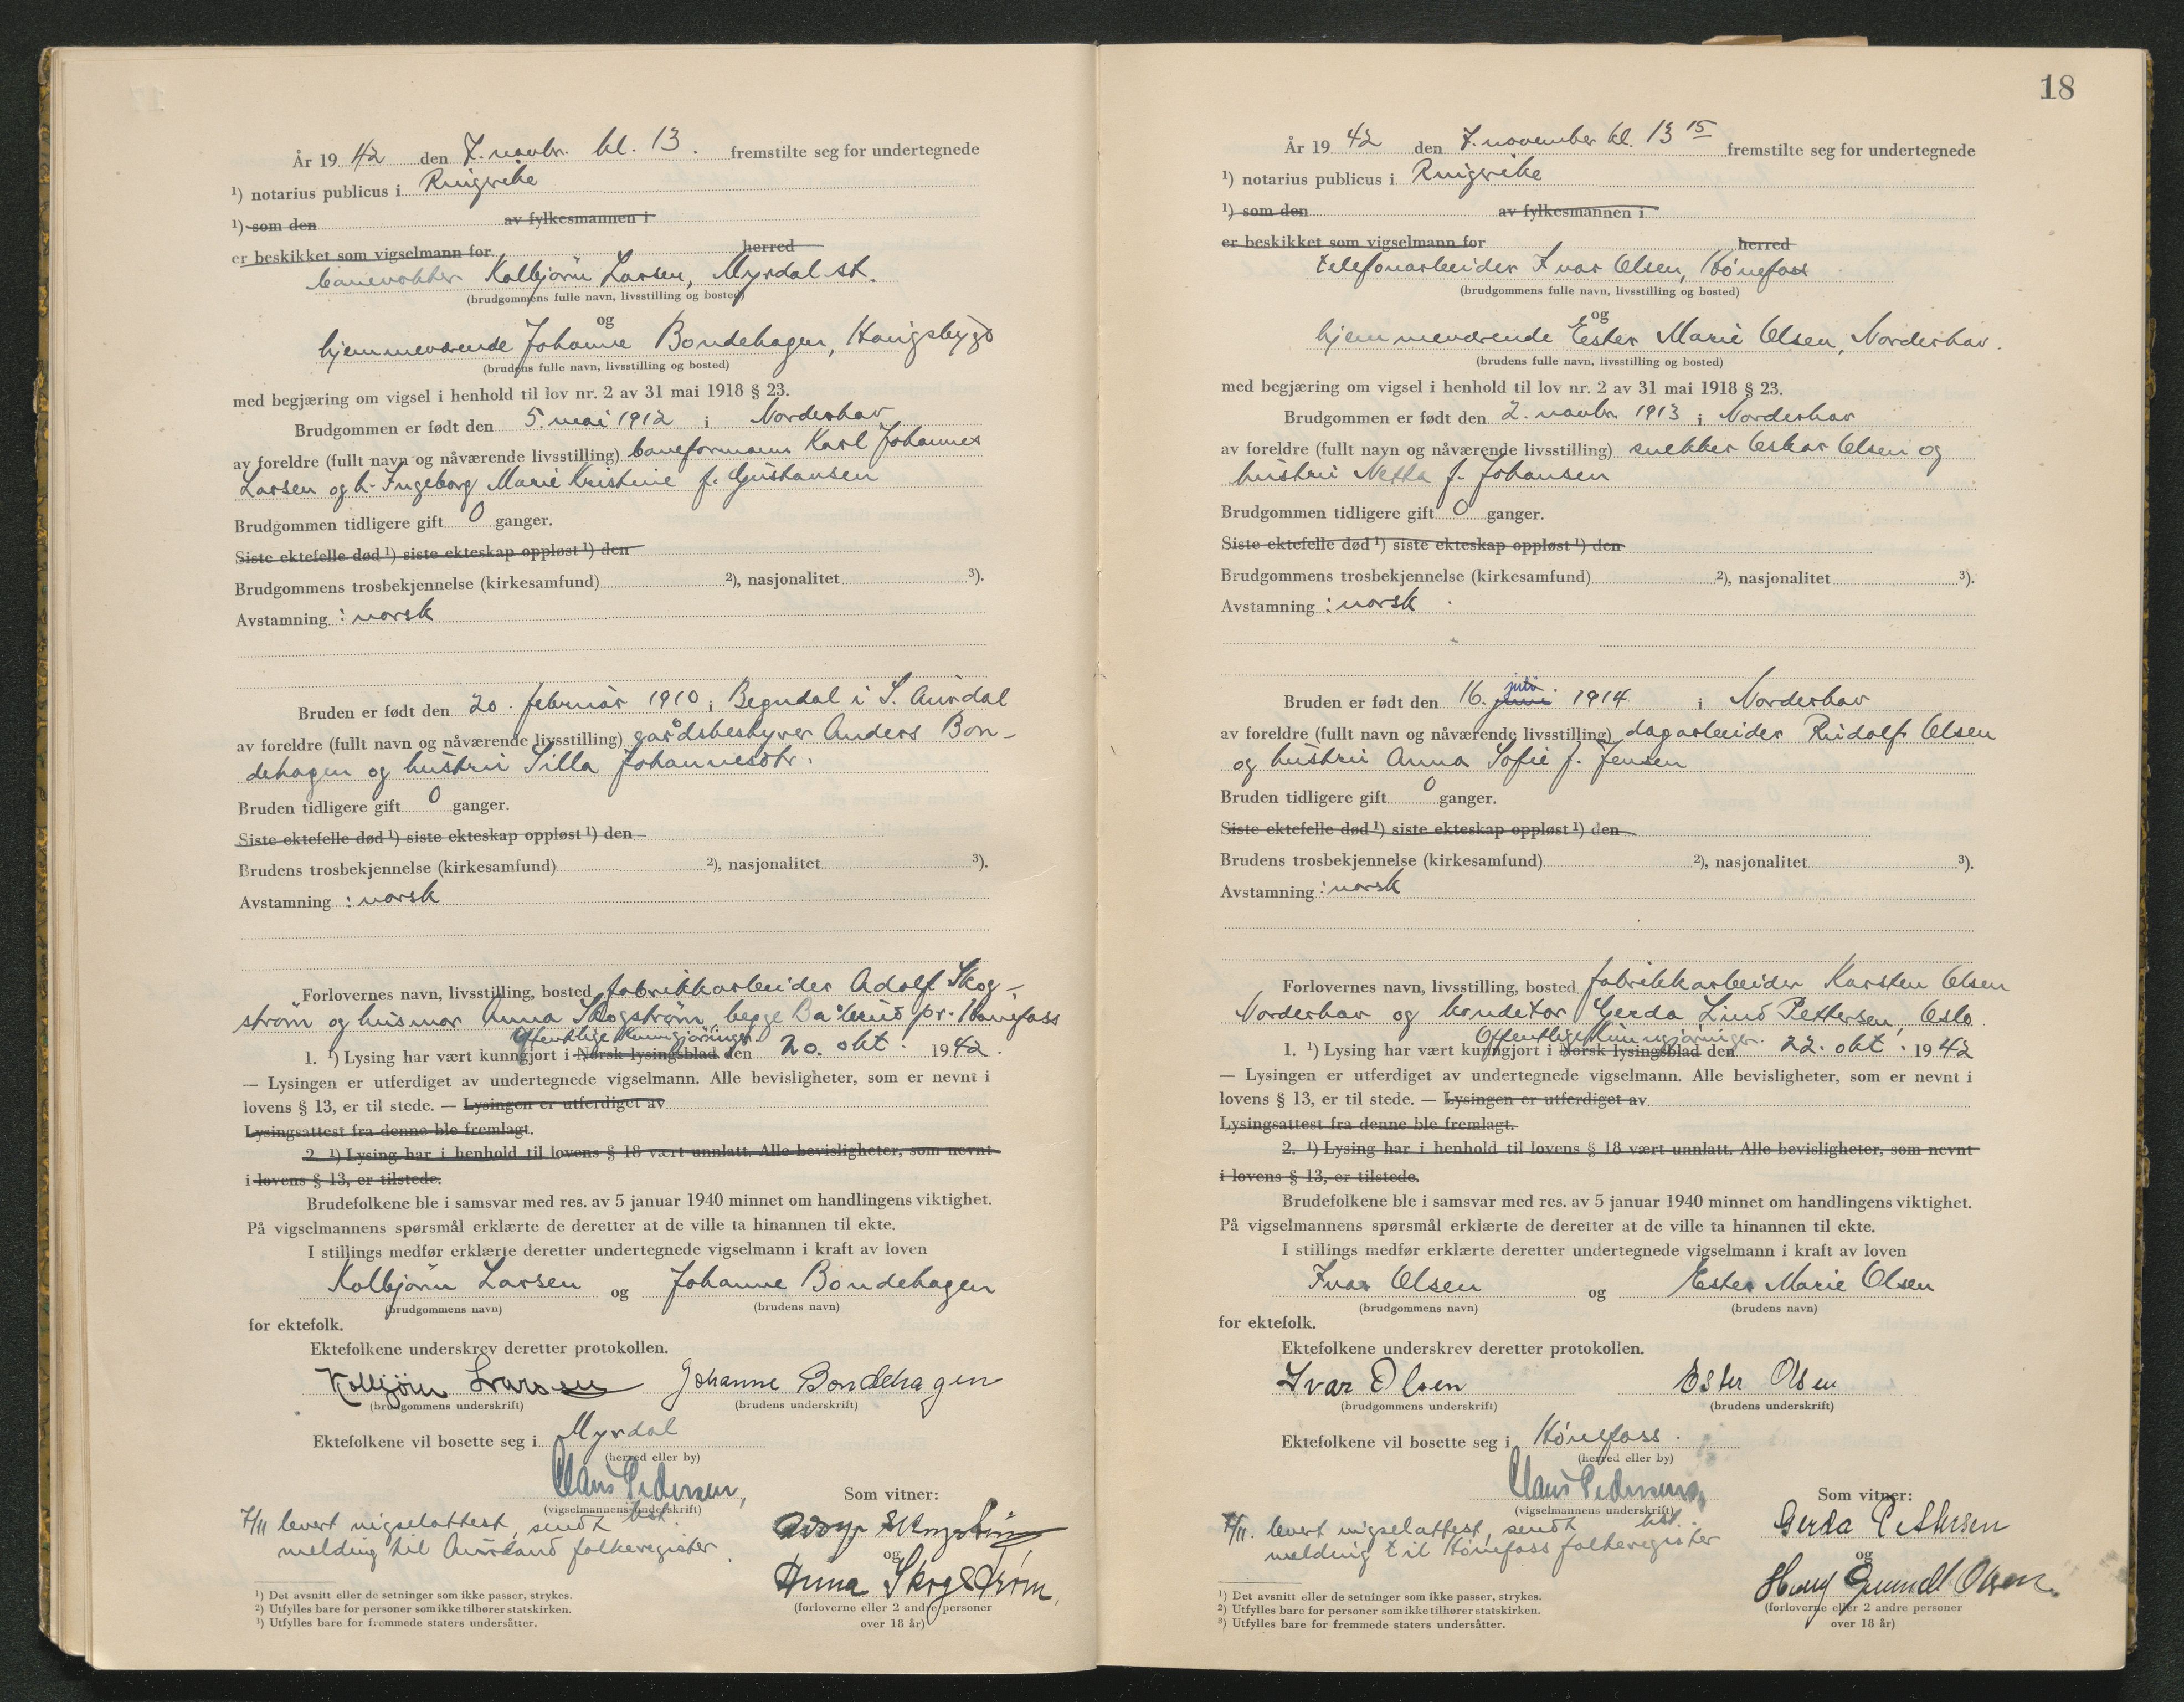 År 1942 den 7. novbr. kl. 13. fremstilte seg for undertegnede
¹) notarius publicus i Ringerike
¹) som den av fylkesmannen i
er beskikket som vigselmann for herred
banevokter Kolbjørn Larsen, Myrdal st.
(brudgommens fulle navn, livsstilling og bosted)
og
hjemmeværende Johanne Bondehagen, Haugsbygd
(brudens fulle navn, livsstilling og bosted)
med begjæring om vigsel i henhold til lov nr. 2 av 31 mai 1918 § 23.
Brudgommen er født den 5. mai 1912 i Norderhov
av foreldre (fullt navn og nåværende livsstilling) baneformann Karl Johannes
Larsen og h. Ingeborg Marie Kristine f. Gushausen
Brudgommen tidligere gift 0 ganger.
Siste ektefelle død ¹) siste ekteskap oppløst ¹) den
Brudgommens trosbekjennelse (kirkesamfund) ²), nasjonalitet ³).
Avstamning : norsk
Bruden er født den 20. februar 1910 i Begndal i S. Aurdal
av foreldre (fullt navn og nåværende livsstilling) gårdsbestyrer Anders Bon-
dehagen og hustru Silla Johannesdtr.
Bruden tidligere gift 0 ganger.
Siste ektefelle død ¹) siste ekteskap oppløst ¹) den
Brudens trosbekjennelse (kirkesamfund) ²), nasjonalitet ³).
Avstamning : norsk
Forlovernes navn, livsstilling, bosted fabrikkarbeider Adolf Skog-
strøm og husmor Anna Skogstrøm begge pr. Hønefoss
Offentlige Kunngjøringer
1. ¹) Lysing har vært kunngjort i Norsk lysingsblad den 20. okt. 1942.
— Lysingen er utferdiget av undertegnede vigselmann. Alle bevisligheter, som er nevnt i
lovens § 13, er til stede. — Lysingen er utferdiget av
Lysingsattest fra denne ble fremlagt.
2. ¹) Lysing har i henhold til lovens § 18 vært unnlatt. Alle bevisligheter, som nevnt
i lovens § 13, er tilstede.
Brudefolkene ble i samsvar med res. av 5 januar 1940 minnet om handlingens viktighet.
På vigselmannens spørsmål erklærte de deretter at de ville ta hinannen til ekte.
I stillings medfør erklærte deretter undertegnede vigselmann i kraft av loven
Kolbjørn Larsen og Johanne Bondehagen
(brudgommens navn) (brudens navn)
for ektefolk.
Ektefolkene underskrev deretter protokollen.
Kolbjørn Larsen Johanne Bondehagen
(brudgommens underskrift) (brudens underskrift)
Ektefolkene vil bosette seg i Myrdal
(herred eller by)
Claus Pedersen,
(vigselmannens underskrift)
Som vitner:
7/11 levert vigselattest, sendt
melding til Aurland folkeregister.
Adolf Skogstrøm
og
Anna Skogstrøm,
(forloverne eller 2 andre personer
over 18 år)
¹) Det avsnitt eller de setninger som ikke passer, strykes.
²) Utfylles bare for personer som ikke tilhører statskirken.
³) Utfylles bare for fremmede staters undersåtter.
18
År 1942 den 7. november kl. 13 15 fremstilte seg for undertegnede
¹) notarius publicus i Ringerike
¹) som den av fylkesmannen i
er beskikket som vigselmann for herred
telefonarbeider Ivar Olsen, Hønefoss
(brudgommens fulle navn, livsstilling og bosted)
og
hjemmeværende Ester Marie Olsen, Norderhov.
(brudens fulle navn, livsstilling og bosted)
med begjæring om vigsel i henhold til lov nr. 2 av 31 mai 1918 § 23.
Brudgommen er født den 2. novbr. 1913 i Norderhov
av foreldre (fullt navn og nåværende livsstilling) snekker Oskar Olsen og
hustru Netta f. Johansen
Brudgommen tidligere gift 0 ganger.
Siste ektefelle død ¹) siste ekteskap oppløst ¹) den
Brudgommens trosbekjennelse (kirkesamfund) ²), nasjonalitet ³).
Avstamning : norsk.
Bruden er født den 16. juni juli 1914 i Norderhov
av foreldre (fullt navn og nåværende livsstilling) dagarbeider Rudolf Olsen
og hustru Anna Sofie f. Jensen
Bruden tidligere gift 0 ganger.
Siste ektefelle død ¹) siste ekteskap oppløst ¹) den
Brudens trosbekjennelse (kirkesamfund) ²), nasjonalitet ³).
Avstamning : norsk
Forlovernes navn, livsstilling, bosted fabrikkarbeider Karsten Olsen
Norderhov og konditor Gerda Lind Pettersen, Oslo.
Offentlige Kunngjøringer.
1. ¹) Lysing har vært kunngjort i Norsk lysingsblad den 22. okt. 1942
— Lysingen er utferdiget av undertegnede vigselmann. Alle bevisligheter, som er nevnt i
lovens § 13, er til stede. — Lysingen er utferdiget av
Lysingsattest fra denne ble fremlagt.
2. ¹) Lysing har i henhold til lovens § 18 vært unnlatt. Alle bevisligheter, som nevnt
i lovens § 13, er tilstede.
Brudefolkene ble i samsvar med res. av 5 januar 1940 minnet om handlingens viktighet.
På vigselmannens spørsmål erklærte de deretter at de ville ta hinannen til ekte.
I stillings medfør erklærte deretter undertegnede vigselmann i kraft av loven
Ivar Olsen og Ester Marie Olsen
(brudgommens navn) (brudens navn)
for ektefolk.
Ektefolkene underskrev deretter protokollen.
Ivar Olsen Ester Olsen
(brudgommens underskrift) (brudens underskrift)
Ektefolkene vil bosette seg i Hønefoss.
(herred eller by)
Claus Pedersen,
(vigselmannens underskrift)
Som vitner:
7/11. levert vigselattest, sendt
melding til Hønefoss folkeregister
Gerda Pettersen
og
Olsen.
(forloverne eller 2 andre personer
over 18 år)
¹) Det avsnitt eller de setninger som ikke passer, strykes.
²) Utfylles bare for personer som ikke tilhører statskirken.
³) Utfylles bare for fremmede staters undersåtter.